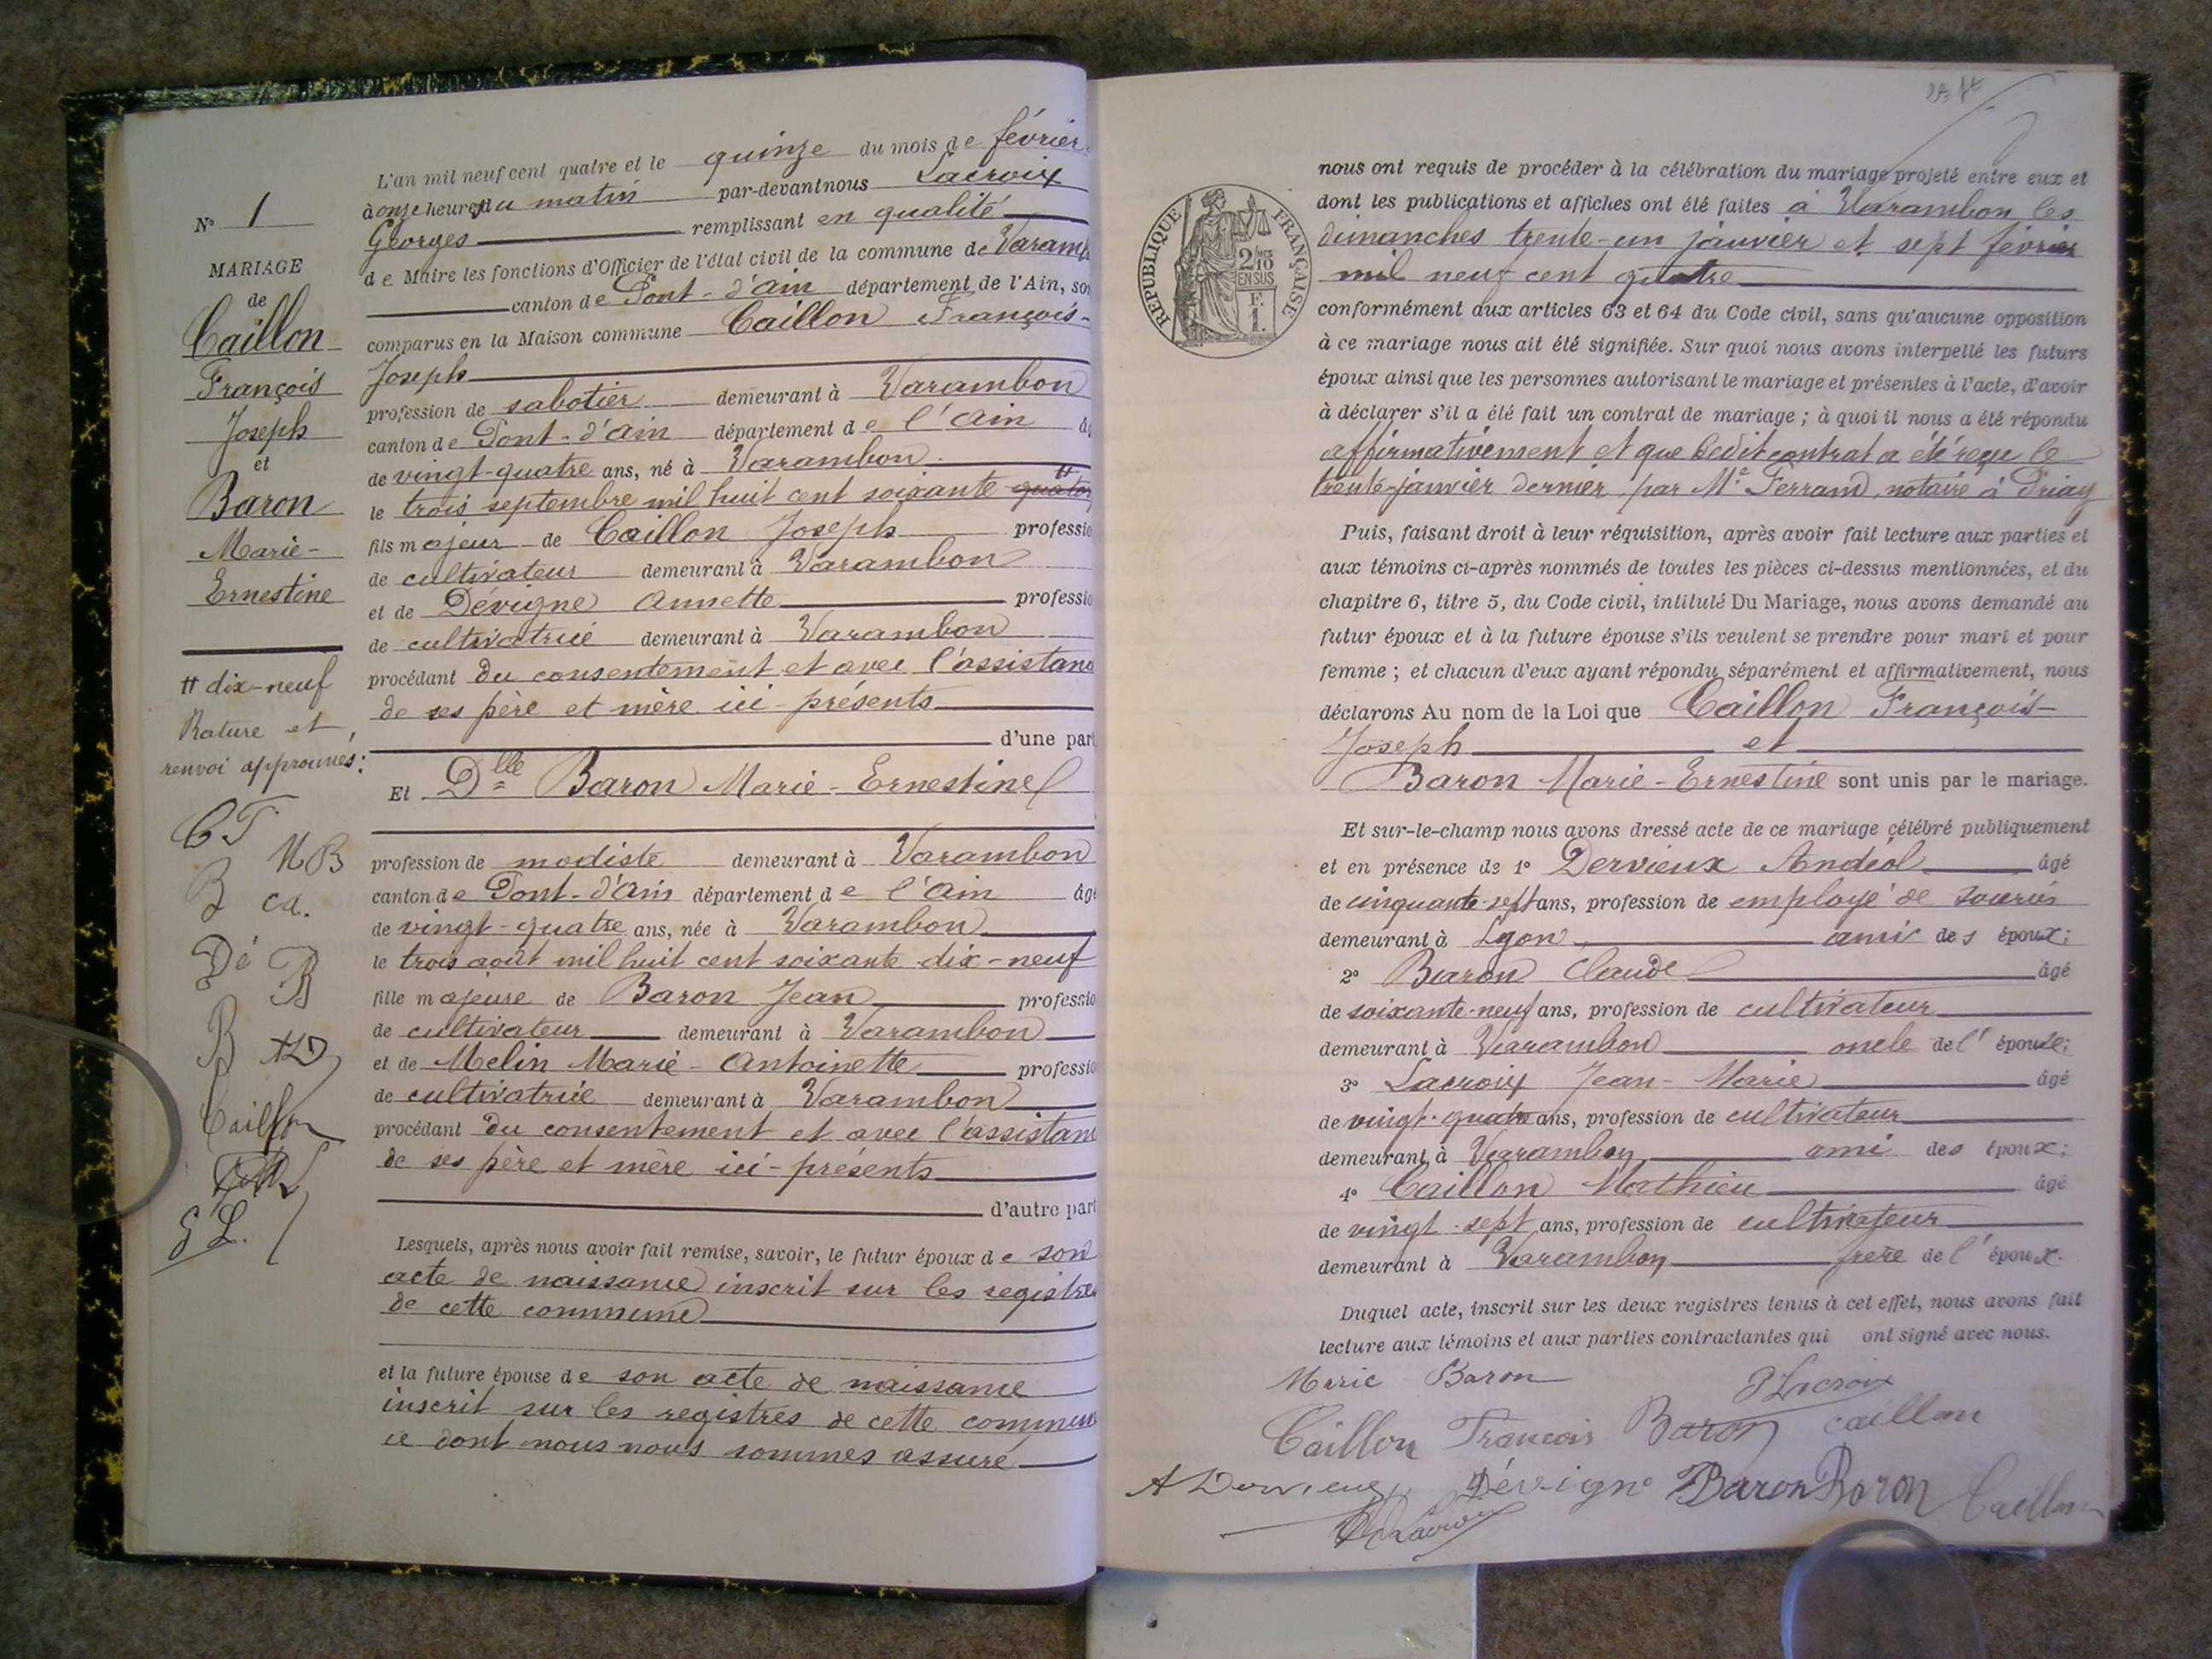 L'an mil neuf cent quatre et le quinze du mois de février
à onze heures du matin par-devant nous Lacroix
Georges remplissant en qualité
de Maire les fonctions d'Officier de l'état civil de la commune de Varamb
canton de Pont-d'ain département de l'Ain, son
comparus en la Maison commune Caillon François-
Joseph
profession de sabotier demeurant à Varambon
canton de Pont-d'ain département de l'ain âg
de vingt-quatre ans, né à Varambon
le trois septembre mil huit cent soixante quator #
fils majeur de Caillon Joseph professio
de cultivateur demeurant à Varambon
et de Dévigne Annette professio
de cultivatrice demeurant à Varambon
procédant du consentement et avec l'assistanc
de ses père et mère ici-présents
d'une part
Et Dlle Baron Marie-Ernestine
profession de modiste demeurant à Varambon
canton de Pont-d'ain département de l'ain âgé
de vingt-quatre ans, née à Varambon
le trois août mil huit cent soixante dix-neuf
fille majeure de Baron Jean professio
de cultivateur demeurant à Varambon
et de Melin Marie-Antoinette professio
de cultivatrice demeurant à Varambon
procédant du consentement et avec l'assistanc
de ses père et mère ici-présents
d'autre part
Lesquels, après nous avoir fait remise, savoir, le futur époux de son
acte de naissance inscrit sur les registres
de cette commune
et la future épouse de son acte de naissance
inscrit sur les registres de cette commun
ce dont nous nous sommes assuré
N° 1
MARIAGE
de
Caillon
François
Joseph
et
Baron
Marie-
Ernestine
# dix-neuf
Rature et
renvoi approuvés:
CF
MB
B ca.
Dé B
B AD
Caillon
GL.
nous ont requis de procéder à la célébration du mariage projeté entre eux et
dont les publications et affiches ont été faites à Varambon les
dimanches trente-un janvier et sept février
mil neuf cent quatre
conformément aux articles 63 et 64 du Code civil, sans qu'aucune opposition
à ce mariage nous ait été signifiée. Sur quoi nous avons interpellé les futurs
époux ainsi que les personnes autorisant le mariage et présentes à l'acte, d'avoir
à déclarer s'il a été fait un contrat de mariage ; à quoi il nous a été répondu
affirmativement et que ledit contrat a été reçu le
trente-janvier dernier, par Me Ferrand, notaire à Priay
Puis, faisant droit à leur réquisition, après avoir fait lecture aux parties et
aux témoins ci-après nommés de toutes les pièces ci-dessus mentionnées, et du
chapitre 6, titre 5, du Code civil, intitulé Du Mariage, nous avons demandé au
futur époux et à la future épouse s'ils veulent se prendre pour mari et pour
femme ; et chacun d'eux ayant répondu séparément et affirmativement, nous
déclarons Au nom de la Loi que Caillon François-
Joseph et
Baron Marie-Ernestine sont unis par le mariage.
Et sur-le-champ nous avons dressé acte de ce mariage célébré publiquement
et en présence de 1° Dervieux Andéol âgé
de cinquante-sept ans, profession de employé de
demeurant à Lyon ami des époux;
2° Baron Claude âgé
de soixante-neuf ans, profession de cultivateur
demeurant à Varambon oncle de l'épouse;
3° Lacroix Jean-Marie âgé
de vingt-quatre ans, profession de cultivateur
demeurant à Varambon ami des époux;
4° Caillon Mathieu âgé
de vingt-sept ans, profession de cultivateur
demeurant à Varambon frère de l'époux.
Duquel acte, inscrit sur les deux registres tenus à cet effet, nous avons fait
lecture aux témoins et aux parties contractantes qui ont signé avec nous.
Marie Baron Lacroix
Caillon François Baron caillon
A Dervieux Dévigne Baron Baron Caillon
Lacroix
RÉPUBLIQUE FRANÇAISE
2/10
EN SUS
F.
1.